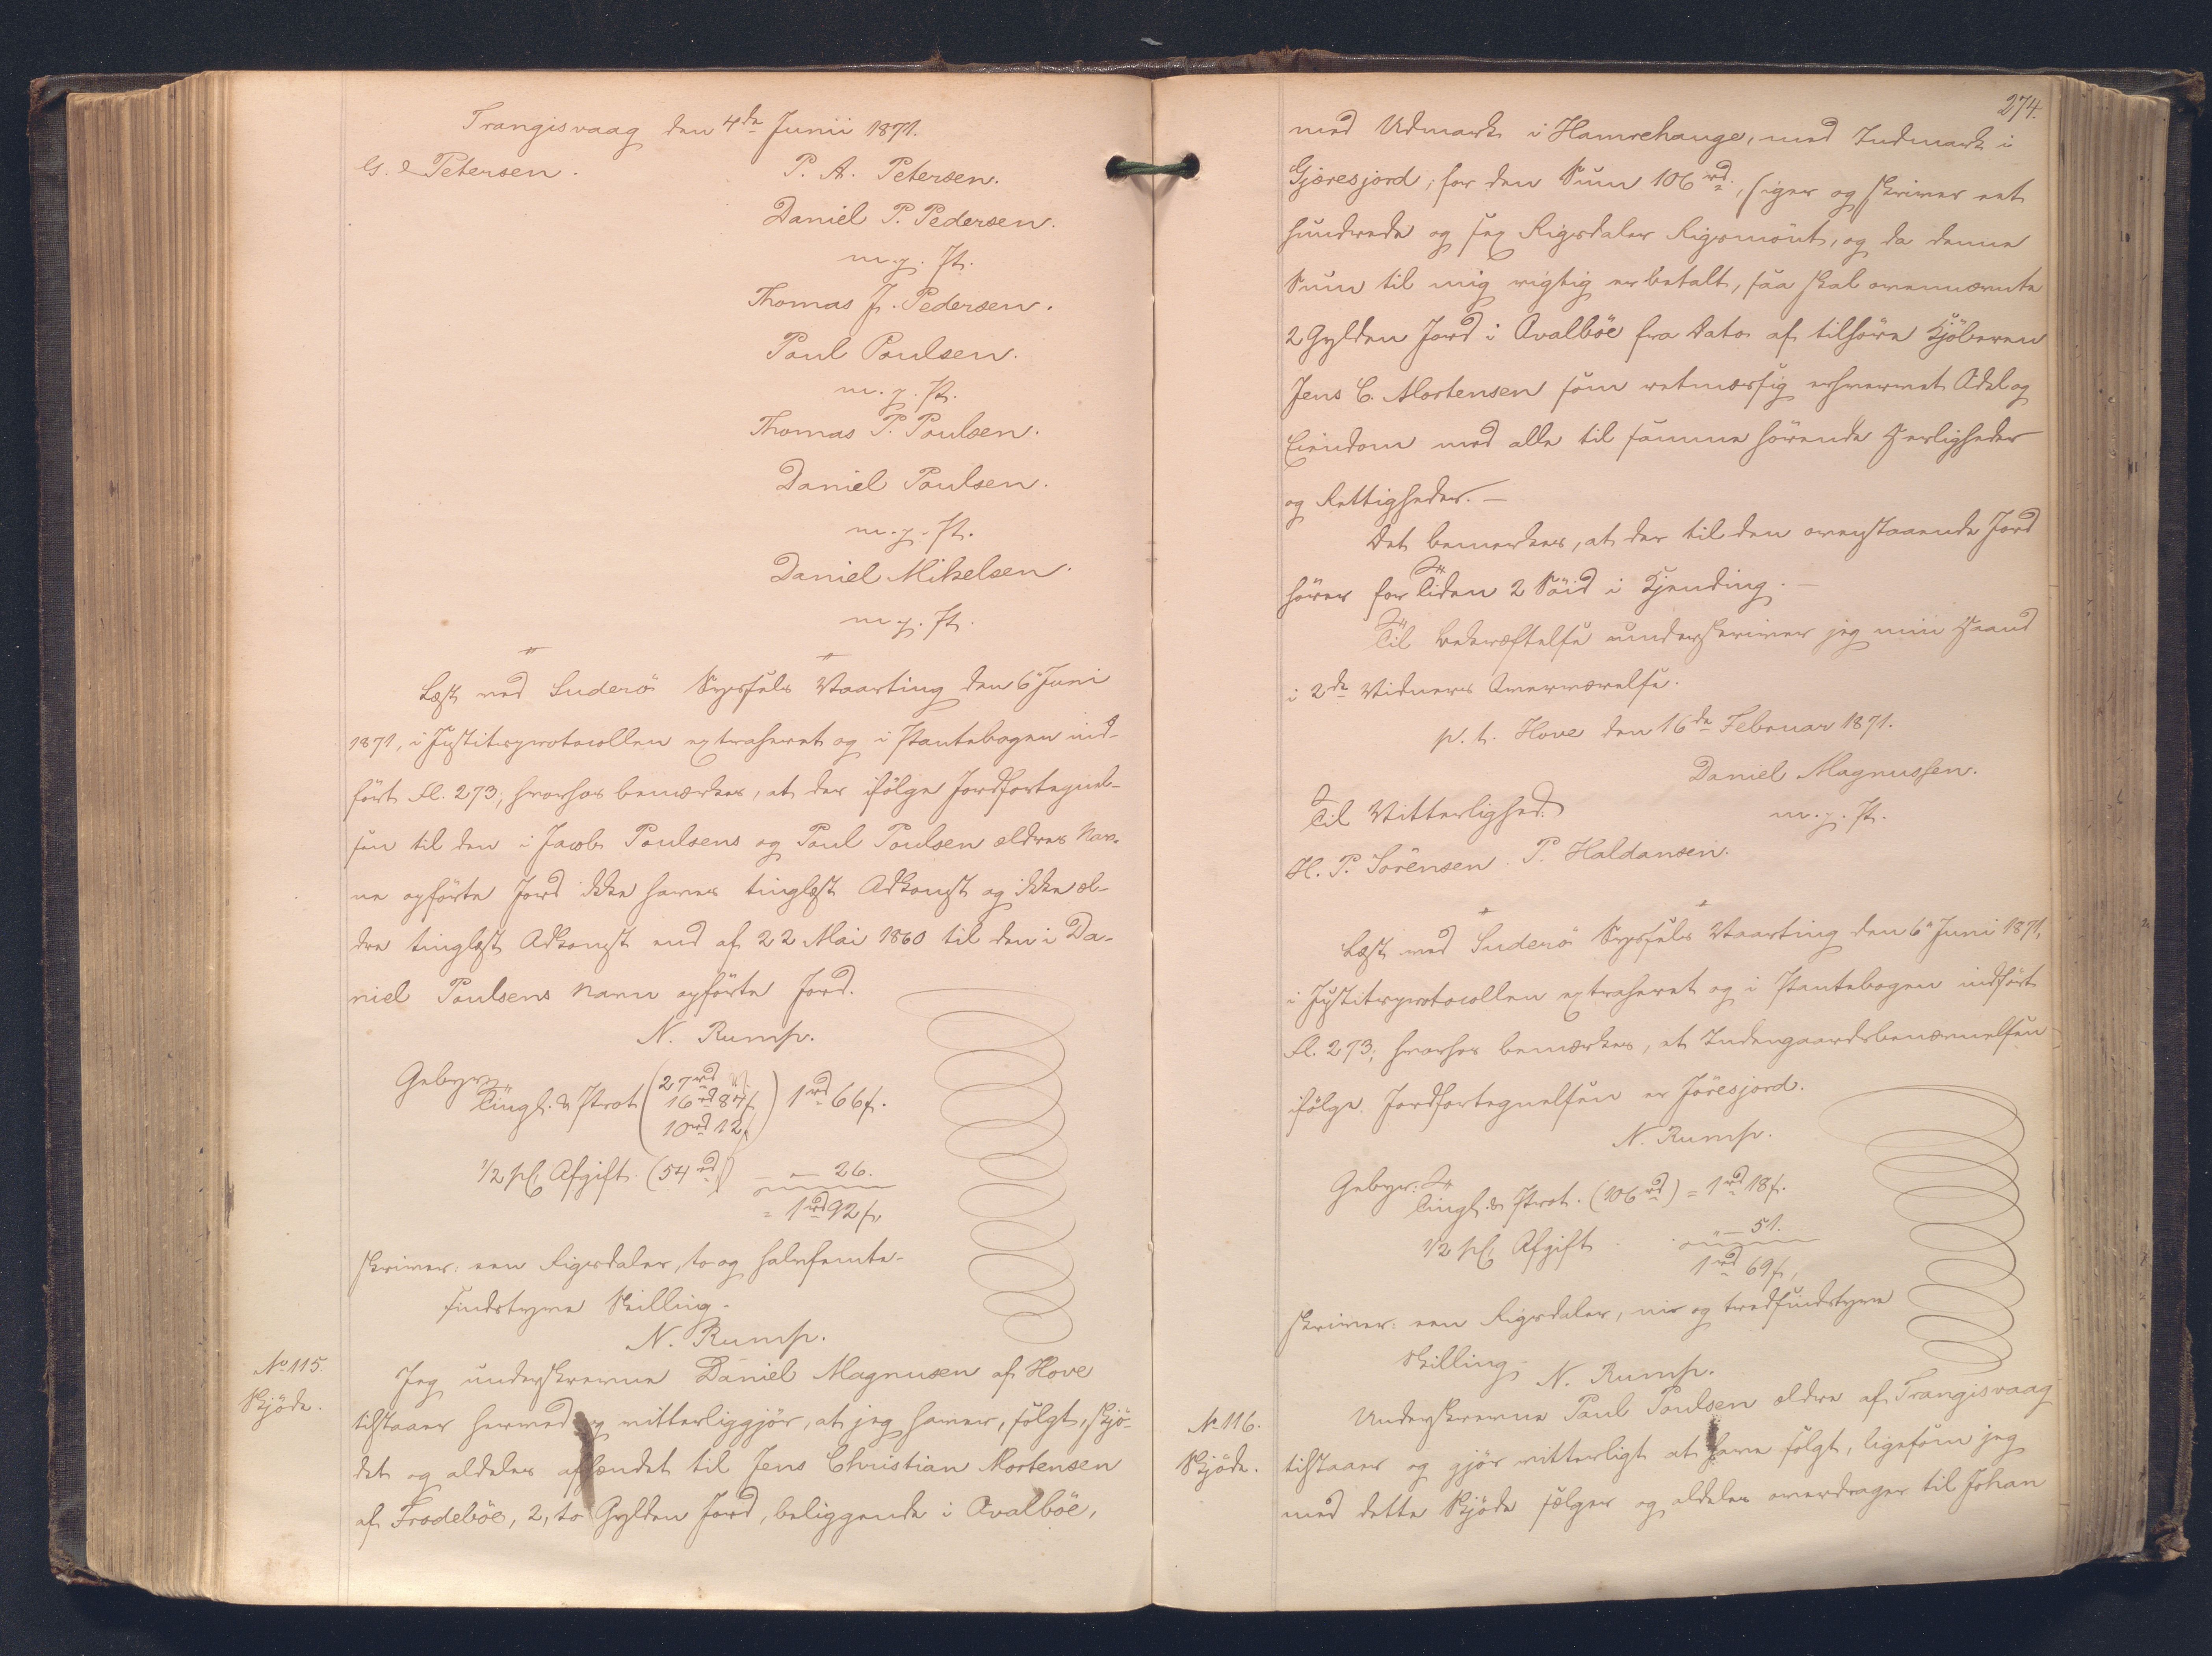 Trangisvaag den 4de Junii 1871.
G. E Petersen.
P. A. Petersen.
Daniel P. Pedersen.
m. p. P.
Thomas J. Pedersen.
Paul Poulsen.
m. p. P.
Thomas P. Poulsen.
Daniel Poulsen.
m. p. P.
Daniel Mikelsen.
m. p. P.
Læst ved Suderö Syssels Vaarting den 6 Juni
1871, i Justitsprotocollen extraheret og i Pantebogen ind-
fört Fl. 273, hvorhos bemærkes, at der ifölge Jordfortegnel-
sen til den i Jacob Poulsens og Paul Poulsen ældres Nav-
ne opförte Jord ikke haves tinglæst Adkomst og ikke æl-
dre tinglæst Adkomst end af 22 Mai 1860 til den i Da-
niel Poulsens Navn opförte Jord.
N. Rump.
Gebyr:
Tingl. & Prot (27rd
16rd 84ß
10rd 12ß) 1rd 66ß.
1/2 pCt Afgift (54rd) — 26.
= 1rd 92ß,
skriver: een Rigsdaler, to og halvfemte-
sindstyve Skilling.
N. Rump.
No 115
Skjöde.
Jeg underskrevne Daniel Magnusen af Hove
tilstaaer herved og vitterliggjör, at jeg haver, solgt, skjö-
det og aldeles afhændet til Jens Christian Mortensen
af Frodeböe, 2, to Gylden Jord, beliggende i Ovalböe,
274.
med Udmark i Hamrehauge, med Indmark i
Gjöresjord, for den Sum 106rd, siger og skriver eet
hundrede og sex Rigsdaler Rigsmönt, og da denne
Sum til mig rigtig er betalt, saa skal ovennævnte
2 Gylden Jord i Ovalböe fra Dato af tilhöre Kjöberen
Jens C. Mortensen som retmæssig erhvervet Odel og
Eiendom med alle til samme hörende Herligheder
og Rettigheder. —
Det bemærkes, at der til den ovenstaaende Jord
hörer for Tiden 2 Söid i Kjending. —
Til Bekræftelse underskriver jeg min Haand
i 2de Vidners Overværelse.
p. t. Hove den 16de Februar 1871.
Daniel Magnussen.
m. p. P.
Til Vitterlighed:
H. P. Sörensen. P. Haldansen.
Læst ved Suderö Syssels Vaarting den 6 Juni 1871,
i Justitsprotocollen extraheret og i Pantebogen indfört
Fl. 273, hvorhos bemærkes, at Indengaardsbenævnelsen
ifölge Jordfortegnelsen er Jöresjord.
N. Rump.
Gebyr:
Tingl. & Prot. (106rd) = 1rd 18ß.
1/2 pCt Afgift " — 51.
1rd 69ß,
skriver: een Rigsdaler, ni og tredsindstyve
Skilling.
N. Rump.
No 116.
Skjöde.
Underskrevne Paul Poulsen ældre af Trangisvaag
tilstaaer og gjör vitterligt at have solgt, ligesom jeg
med dette Skjöde sælger og aldeles overdrager til Johan